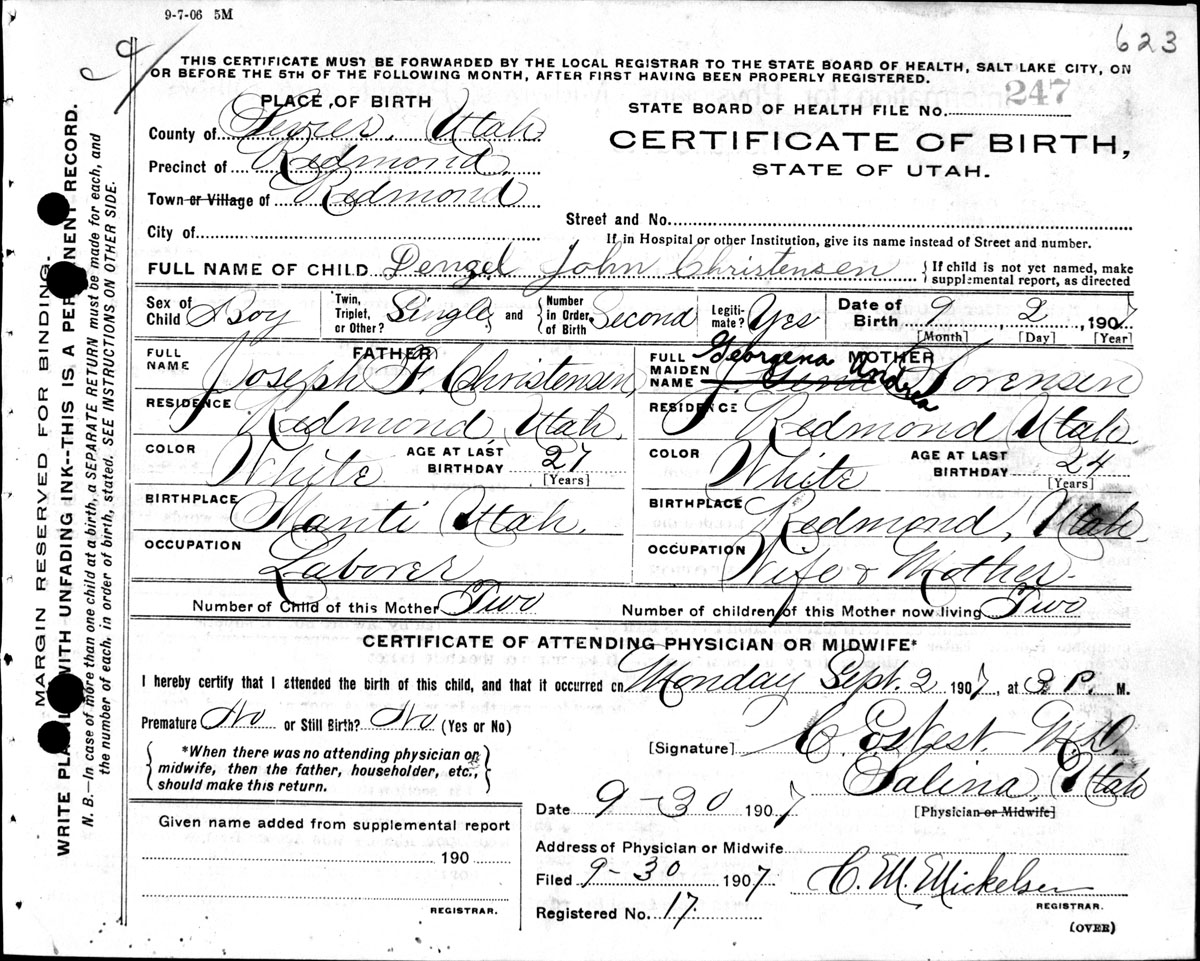 9-7-06 5M
623
THIS CERTIFICATE MUST BE FORWARDED BY THE LOCAL REGISTRAR TO THE STATE BOARD OF HEALTH, SALT LAKE CITY, ON
OR BEFORE THE 5TH OF THE FOLLOWING MONTH, AFTER FIRST HAVING BEEN PROPERLY REGISTERED.
PLACE OF BIRTH
STATE BOARD OF HEALTH FILE No. 247
County of Sevier, Utah
CERTIFICATE OF BIRTH,
Precinct of Redmond
STATE OF UTAH.
Town or Village of Redmond
Street and No.
City of
If in Hospital or other Institution, give its name instead of Street and number.
FULL NAME OF CHILD Denzel John Christensen { If child is not yet named, make
supplemental report, as directed
Sex of Child Boy Twin, Triplet, or Other? Single and { Number in Order of Birth Second Legiti-mate? Yes Date of Birth 9 2, 1907
[Month] [Day] [Year]
FATHER
FULL NAME Joseph F. Christensen
MOTHER
FULL MAIDEN NAME Georgena Andrea Sorensen
RESIDENCE Redmond, Utah.
RESIDENCE Redmond Utah
COLOR White AGE AT LAST BIRTHDAY 27 [Years]
COLOR White AGE AT LAST BIRTHDAY 24 [Years]
BIRTHPLACE Manti Utah.
BIRTHPLACE Redmond, Utah.
OCCUPATION Laborer
OCCUPATION Wife & Mother
Number of Child of this Mother Two
Number of children of this Mother now living Two
CERTIFICATE OF ATTENDING PHYSICIAN OR MIDWIFE*
I hereby certify that I attended the birth of this child, and that it occurred on Monday Sept. 2 1907, at 3 P. M.
Premature No or Still Birth? No (Yes or No)
{ *When there was no attending physician or
midwife, then the father, householder, etc.,
should make this return. }
[Signature] M.D.
Salina, Utah
[Physician or Midwife]
Date 9-30 1907
Given name added from supplemental report
190
REGISTRAR.
Address of Physician or Midwife
Filed 9-30 1907 C. M. Mickelsen
REGISTRAR.
Registered No. 17
(OVER)
MARGIN RESERVED FOR BINDING.
WRITE PLAINLY WITH UNFADING INK--THIS IS A PERMANENT RECORD.
N. B.—In case of more than one child at a birth, a SEPARATE RETURN must be made for each, and
the number of each, in order of birth, stated. SEE INSTRUCTIONS ON OTHER SIDE.